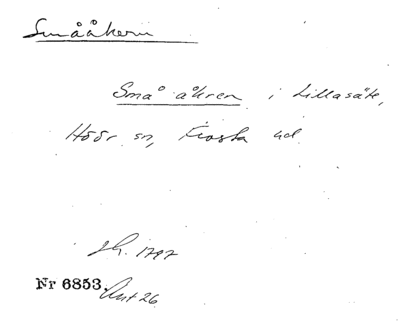 Småååkern
Små åkren i Lillasäte,
Höör sn, Frosta hd
Sk. 1797
Nr 6853. Akt 26